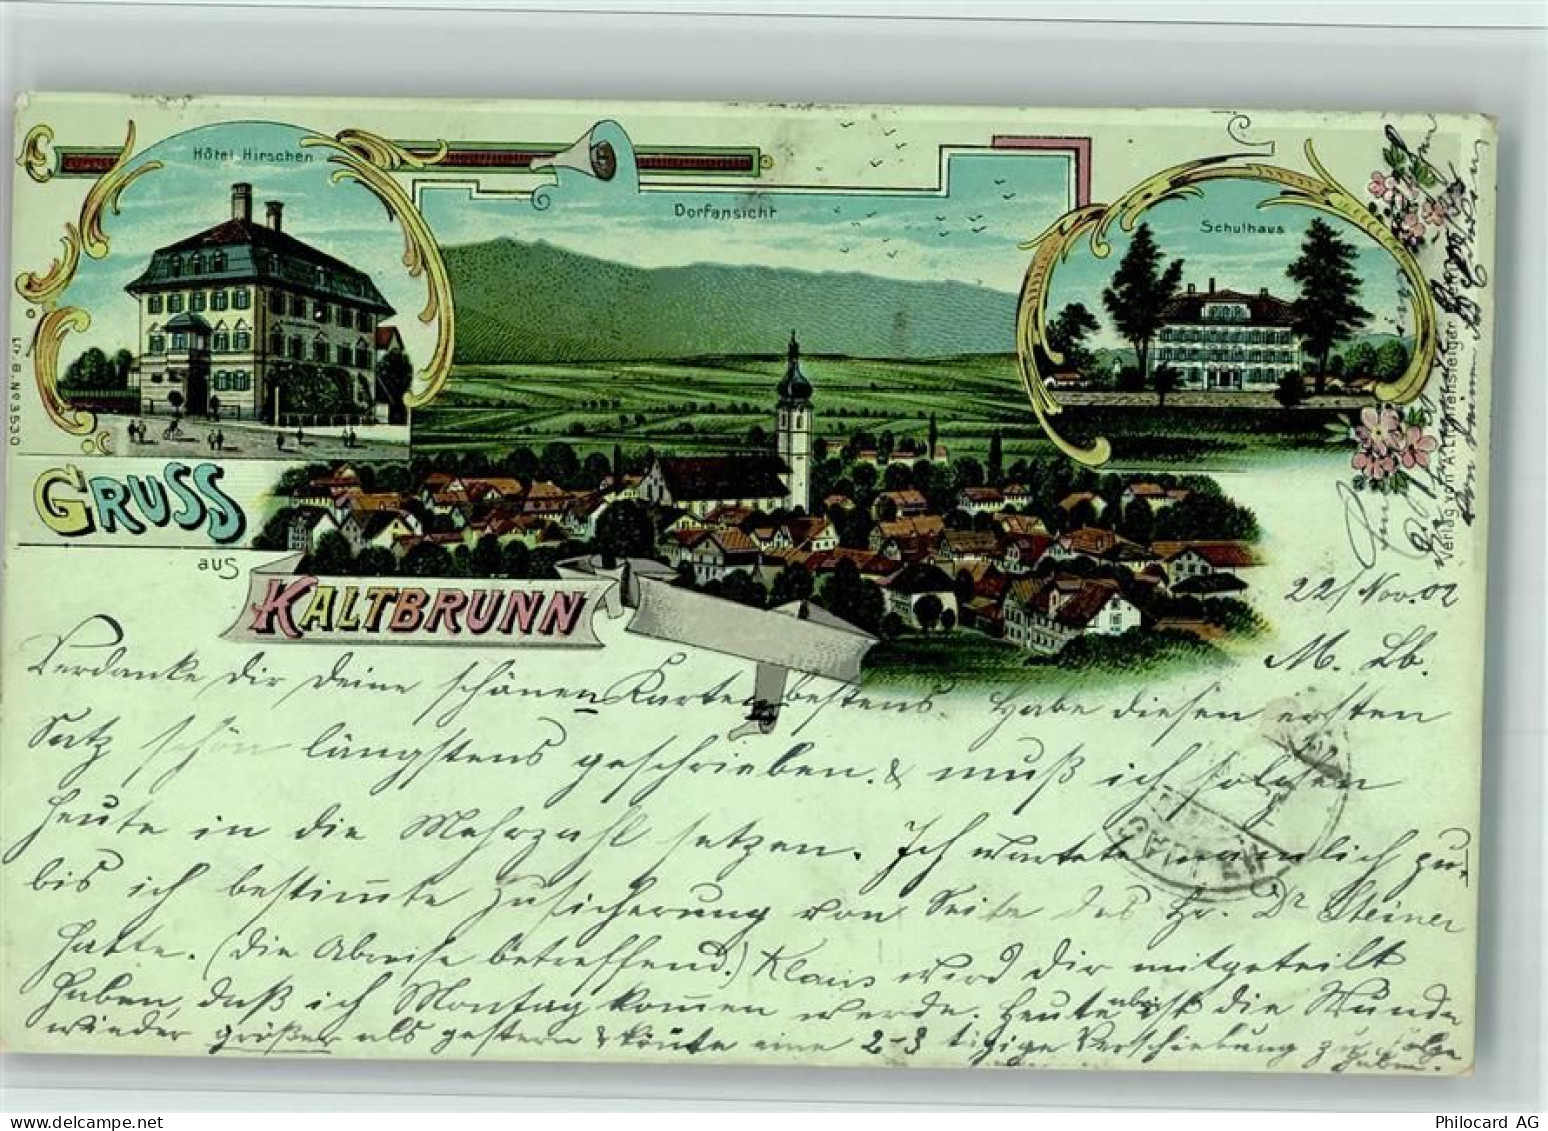 Hôtel Hirschen
Dorfansicht
Schulhaus
Lr. B. No 3530
Verlag von A.
GRUSS
aus
KALTBRUNN
22/Nov. 02
M. Lb.
Verdanke dir deine schönen Karten bestens. Habe diesen ersten
Satz schön längstens geschrieben & muß ich solchen
heute in die Mehrzahl setzen. Ich wartete nämlich zu,
bis ich bestimte Zusicherung von Seite des Hr. Dr Steiner
hatte. (die Abreise betreffend.) Klaus wird dir mitgeteilt
haben, daß ich Montag komen werde. Heute aber ist die Wunde
wieder größer als gestern & könte eine 2-3 tägige Verschiebung zu folge
haben.
Philocard AG